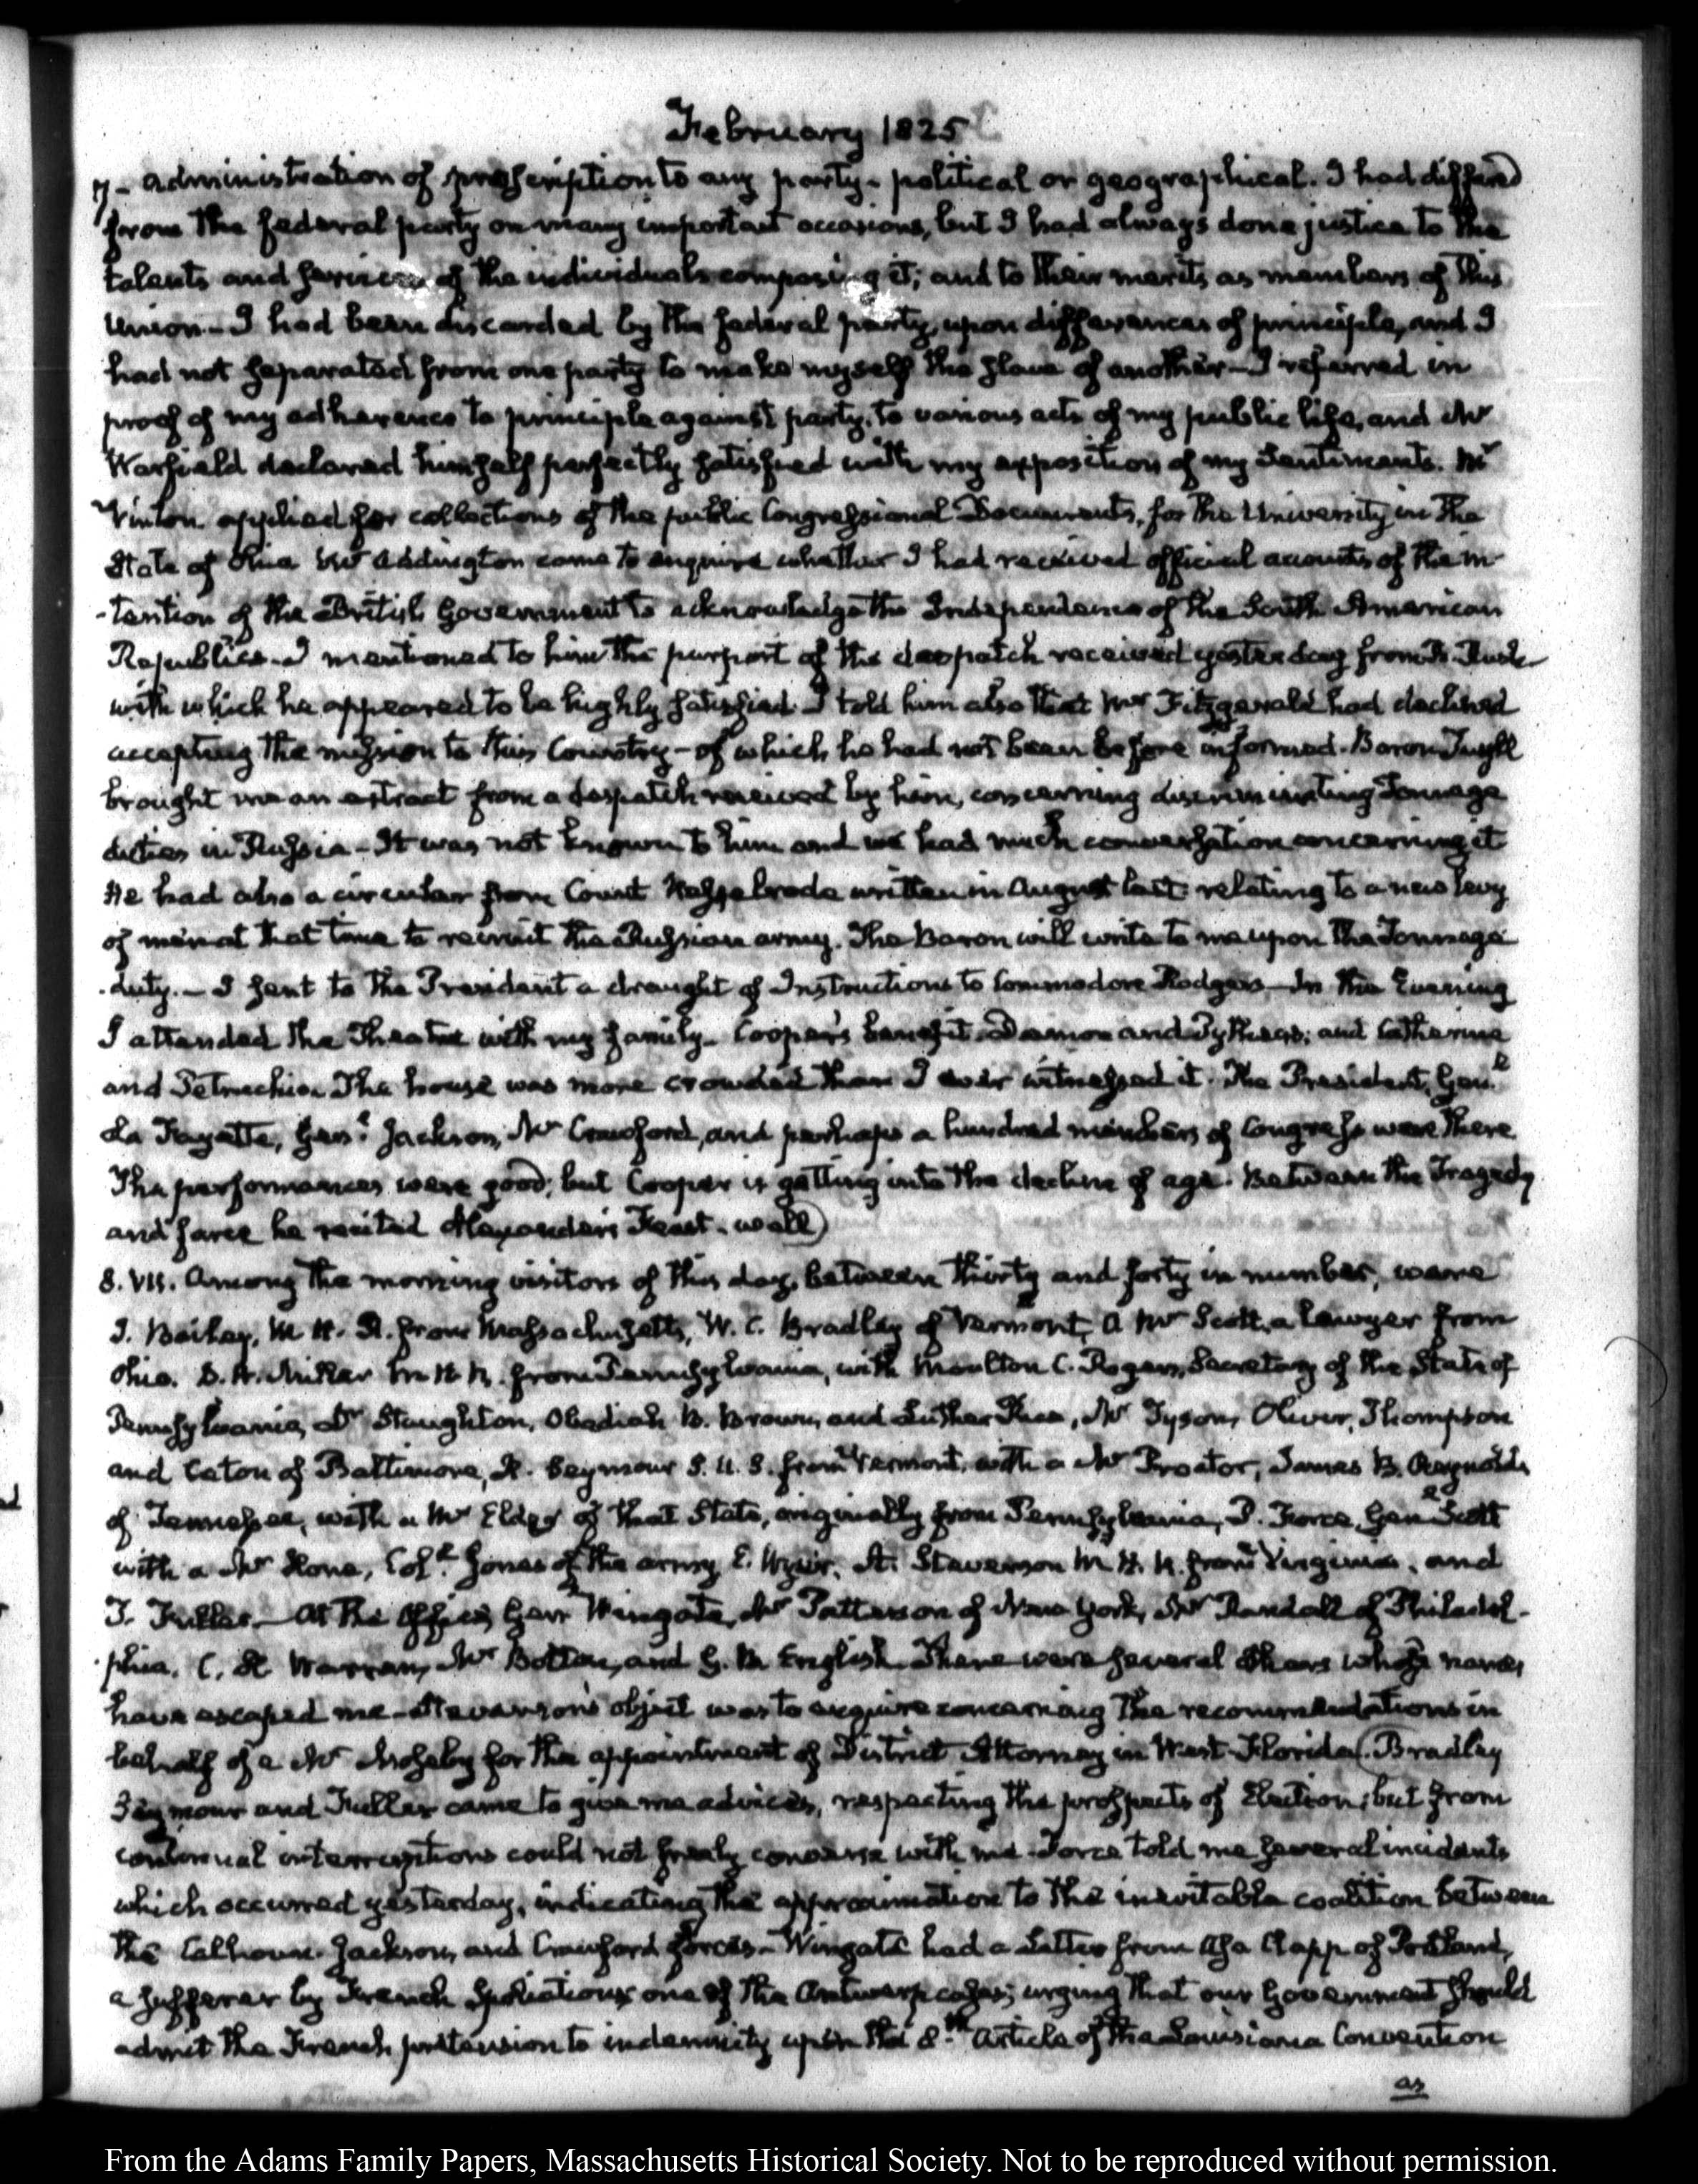 February 1825
7 - administration of proscription to any party - political or geographical. I had differed
from the federal party on many important occasions, but I had always done justice to the
talents and services of the individuals composing it; and to their merits as members of this
Union - I had been discarded by the federal party, upon differences of principle, and I
had not separated from one party to make myself the slave of another - I referred in
proof of my adherence to principle against party, to various acts of my public life, and Mr
Warfield declared himself perfectly satisfied with my exposition of my Sentiments. Mr
Vinton applied for collections of the public Congressional Documents, for the University in the
State of Ohio Mr Addington came to enquire whether I had received official accounts of the in-
-tention of the British Government to acknowledge the Independence of the South American
Republics - I mentioned to him the purport of the despatch received yesterday from R. Rush
with which he appeared to be highly satisfied. I told him also that Mr Fitzgerald had declined
accepting the mission to this Country - of which he had not been before informed. Baron Tuyll
brought me an extract from a despatch received by him, concerning discriminating Tonnage
duties in Russia - It was not known to him and we had much conversation concerning it
He had also a circular from Count Nesselrode written in August last relating to a new levy
of men at that time to recruit the Russian army. The Baron will write to me upon the Tonnage
duty. - I sent to the President a draught of Instructions to Commodore Rodgers - In the Evening
I attended the Theatre with my family - Cooper's benefit. Damon and Pythias; and Catherine
and Petruchio. The house was more crowded than I ever witnessed it. The President, Genl
La Fayette, Genl Jackson, Mr Crawford, and perhaps a hundred members of Congress were there
The performances were good; but Cooper is getting into the decline of age. Between the Tragedy
and farce he recited Alexander's Feast. well)
8. VII. Among the morning visitors of this day, between thirty and forty in number, were
J. Bailey, M. H. R. from Massachusetts, W. C. Bradley of Vermont, a Mr Scott, a Lawyer from
Ohio. D. H. Miller M H R. from Pennsylvania, with Moulton C. Rogers, Secretary of the State of
Pennsylvania, Dr Staughton, Obadiah B. Brown, and Luther Rice, Mr Tyson, Oliver, Thompson
and Eaton of Baltimore, H. Seymour S. U. S. from Vermont, with a Mr Proctor, James B. Reynolds
of Tennessee, with a Mr Elder of that State, originally from Pennsylvania, P. Force, Genl Scott
with a Mr Hone, Coll Jones of the army, E. Wyer, A. Stevenson M. H. R. from Virginia, and
T. Fuller - At the Office, Genl Wingate, Mr Patterson of New York, Mr Randall of Philadel-
-phia, C. H. Warren, Mr Bolton, and G. B. English. There were several others whose names
have escaped me - Stevenson's object was to enquire concerning the recommendations in
behalf of a Mr Moseby for the appointment of District Attorney in West-Florida (Bradley
Seymour and Fuller came to give me advices, respecting the prospects of Election; but from
continual interruptions could not freely converse with me - Force told me several incidents
which occurred yesterday, indicating the approximation to the inevitable coalition between
the Calhoun Jackson, and Crawford forces - Wingate had a Letter from Asa Clapp of Portland,
a sufferer by French Spoliations, one of the Antwerp cases; urging that our Government should
admit the French pretension to indemnity upon the 8th Article of the Louisiana Convention
as
From the Adams Family Papers, Massachusetts Historical Society. Not to be reproduced without permission.